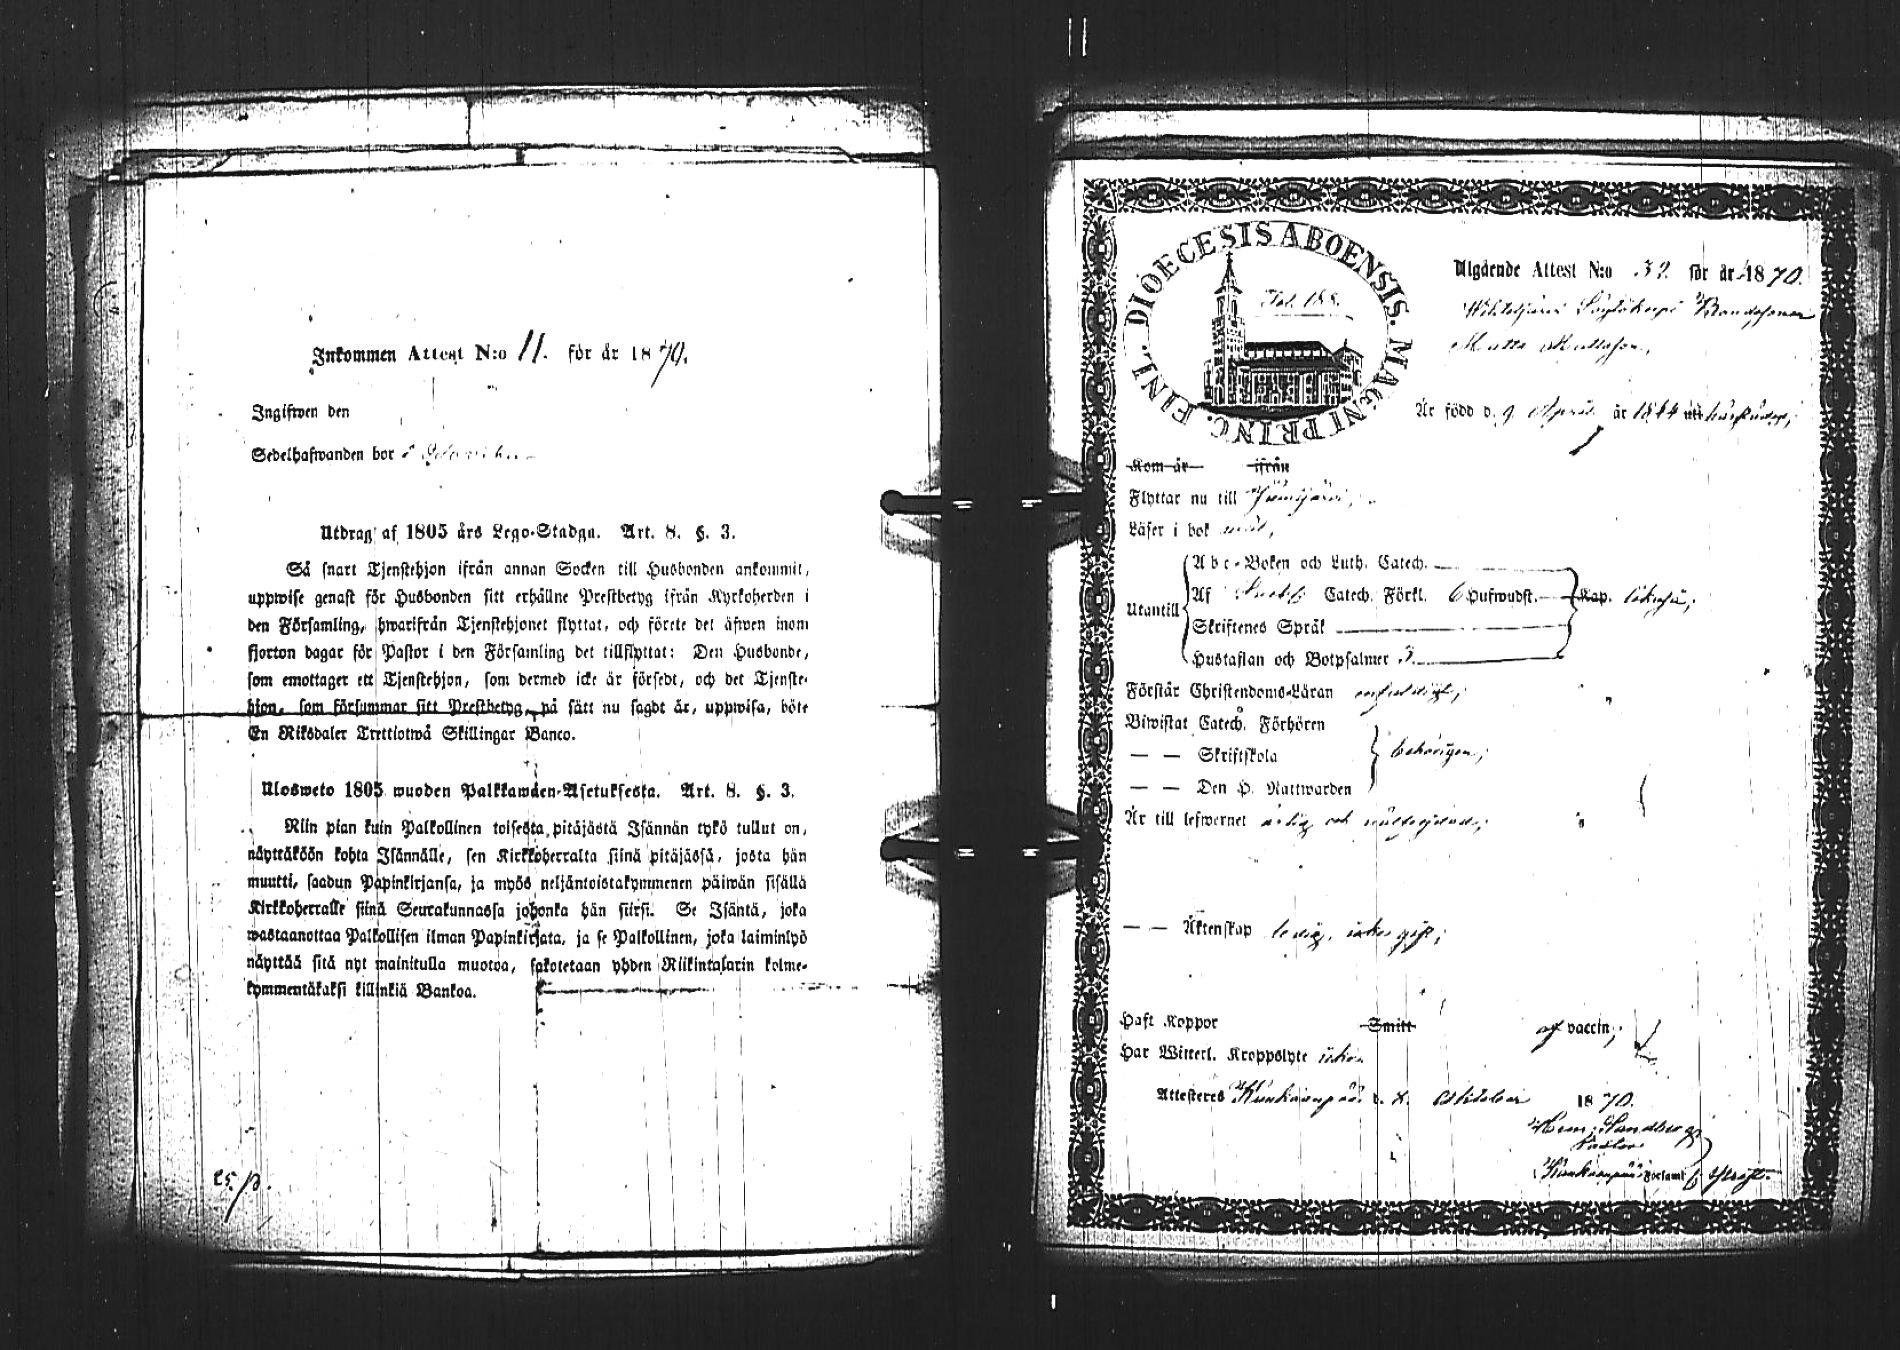 Inkommen Attest N:o 11. för år 1870.
Ingifwen den
Sedelhafwanden bor i
Utdrag af 1805 års Lego-Stadga. Art. 8. §. 3.
Så snart Tjenstehjon ifrån annan Socken till Husbonden ankommit,
uppwise genast för Husbonden sitt erhållne Prestbetyg ifrån Kyrkoherden i
den Församling, hwarifrån Tjenstehjonet flyttat, och förete det äfwen inom
fjorton dagar för Pastor i den Församling det tillflyttat: Den Husbonde,
som emottager ett Tjenstehjon, som dermed icke är försedt, och det Tjenste-
hjon, som försummar sitt Prestbetyg, på sätt nu sagdt är, uppwisa, böte
En Riksdaler Trettiotwå Skillingar Banco.
Ulosweto 1805 wuoden Palkkawäen-Asetuksesta. Art. 8. §. 3.
Niin pian kuin Palkollinen toisesta pitäjästä Isännän tykö tullut on,
näyttäköön kohta Isännälle, sen Kirkkoherralta siinä pitäjässä, josta hän
muutti, saadun Papinkirjansa, ja myös neljäntoistakymmenen päiwän sisällä
Kirkkoherralle siinä Seurakunnassa johonka hän siirsi. Se Isäntä, joka
wastaanottaa Palkollisen ilman Papinkirjata, ja se Palkollinen, joka laiminlyö
näyttää sitä nyt mainitulla muotoa, sakotetaan yhden Riikintalarin kolme-
kymmentäkaksi killinkiä Bankoa.
25 p.
DIOECESIS ABOENSIS. MAGNI PRINC. FINL.
Fol. 188.
Utgående Attest N:o 32. för år 1870.
Bondesonen
Matts Mattsson,
Är född d. 9 April år 1844 härstädes;
Kom år ifrån
Flyttar nu till Jämijärvi,
Läser i bok nöjl,
Utantill
Abc-Boken och Luth. Catech.
Af Catech. Förkl. 6 Hufwudst. Kap.
Skriftenes Språk
Hustaflan och Botpsalmer 3
Förstår Christendoms-Läran enfaldigt;
Biwistat Catech. Förhören
— — Skriftskola behörigen;
— — Den H. Nattwarden
Är till lefwernet ärlig och wälfrejdad;
— — Äktenskap ledig, icke gift;
Haft Koppor Smitt af vaccin;
Har Witterl. Kroppslyte icke.
Attesteres Kankaanpää d. 8. Oktober 1870.
Herm. Sandberg
Pastor
Kankaanpää Församl.